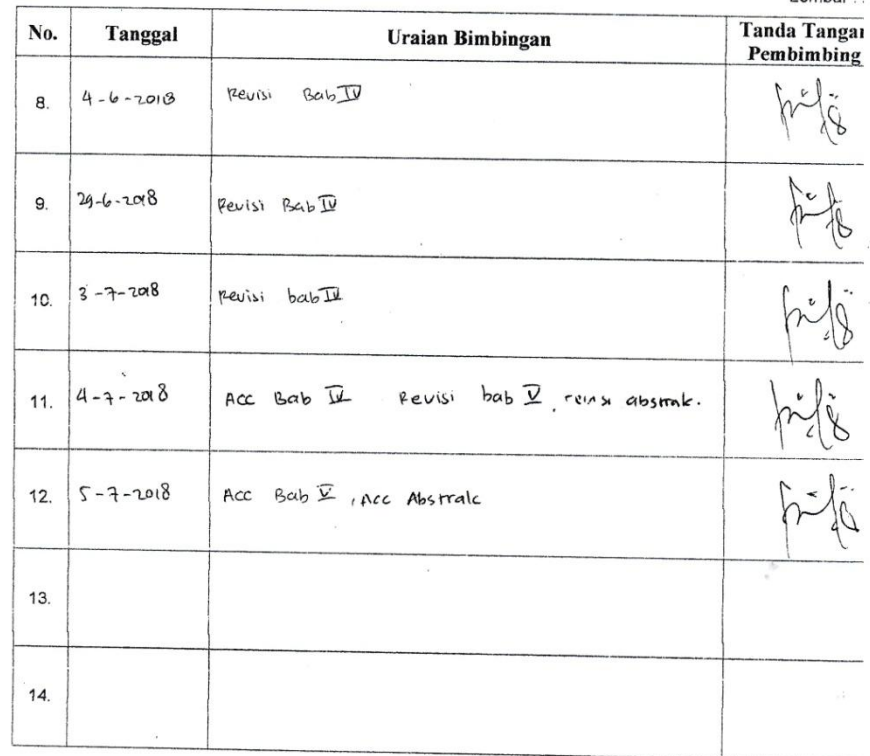 No. Tanggal Uraian Bimbingan Tanda Tangan
Pembimbing
8. 4-6-2018 Revisi Bab IV
9. 29-6-2018 Revisi Bab IV
10. 3-7-2018 Revisi bab IV
11. 4-7-2018 Acc Bab IV Revisi bab V, revisi abstrak.
12. 5-7-2018 Acc Bab V, Acc Abstrak
13.
14.